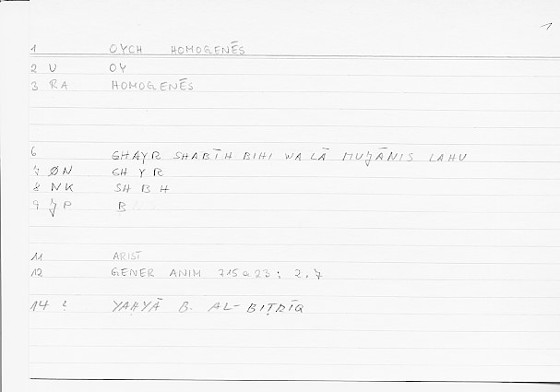 1
1 OYCH HOMOGENĒS
2 U OY
3 RA HOMOGENĒS
6 GHAYR SHABĪH BIHI WA LĀ MUJĀNIS LAHU
7 ØN GH Y R
8 NK SH B H
9 JP B
11 ARIST
12 GENER ANIM 715a23; 2,7
14 : YAḤYĀ B. AL-BIṬRĪQ